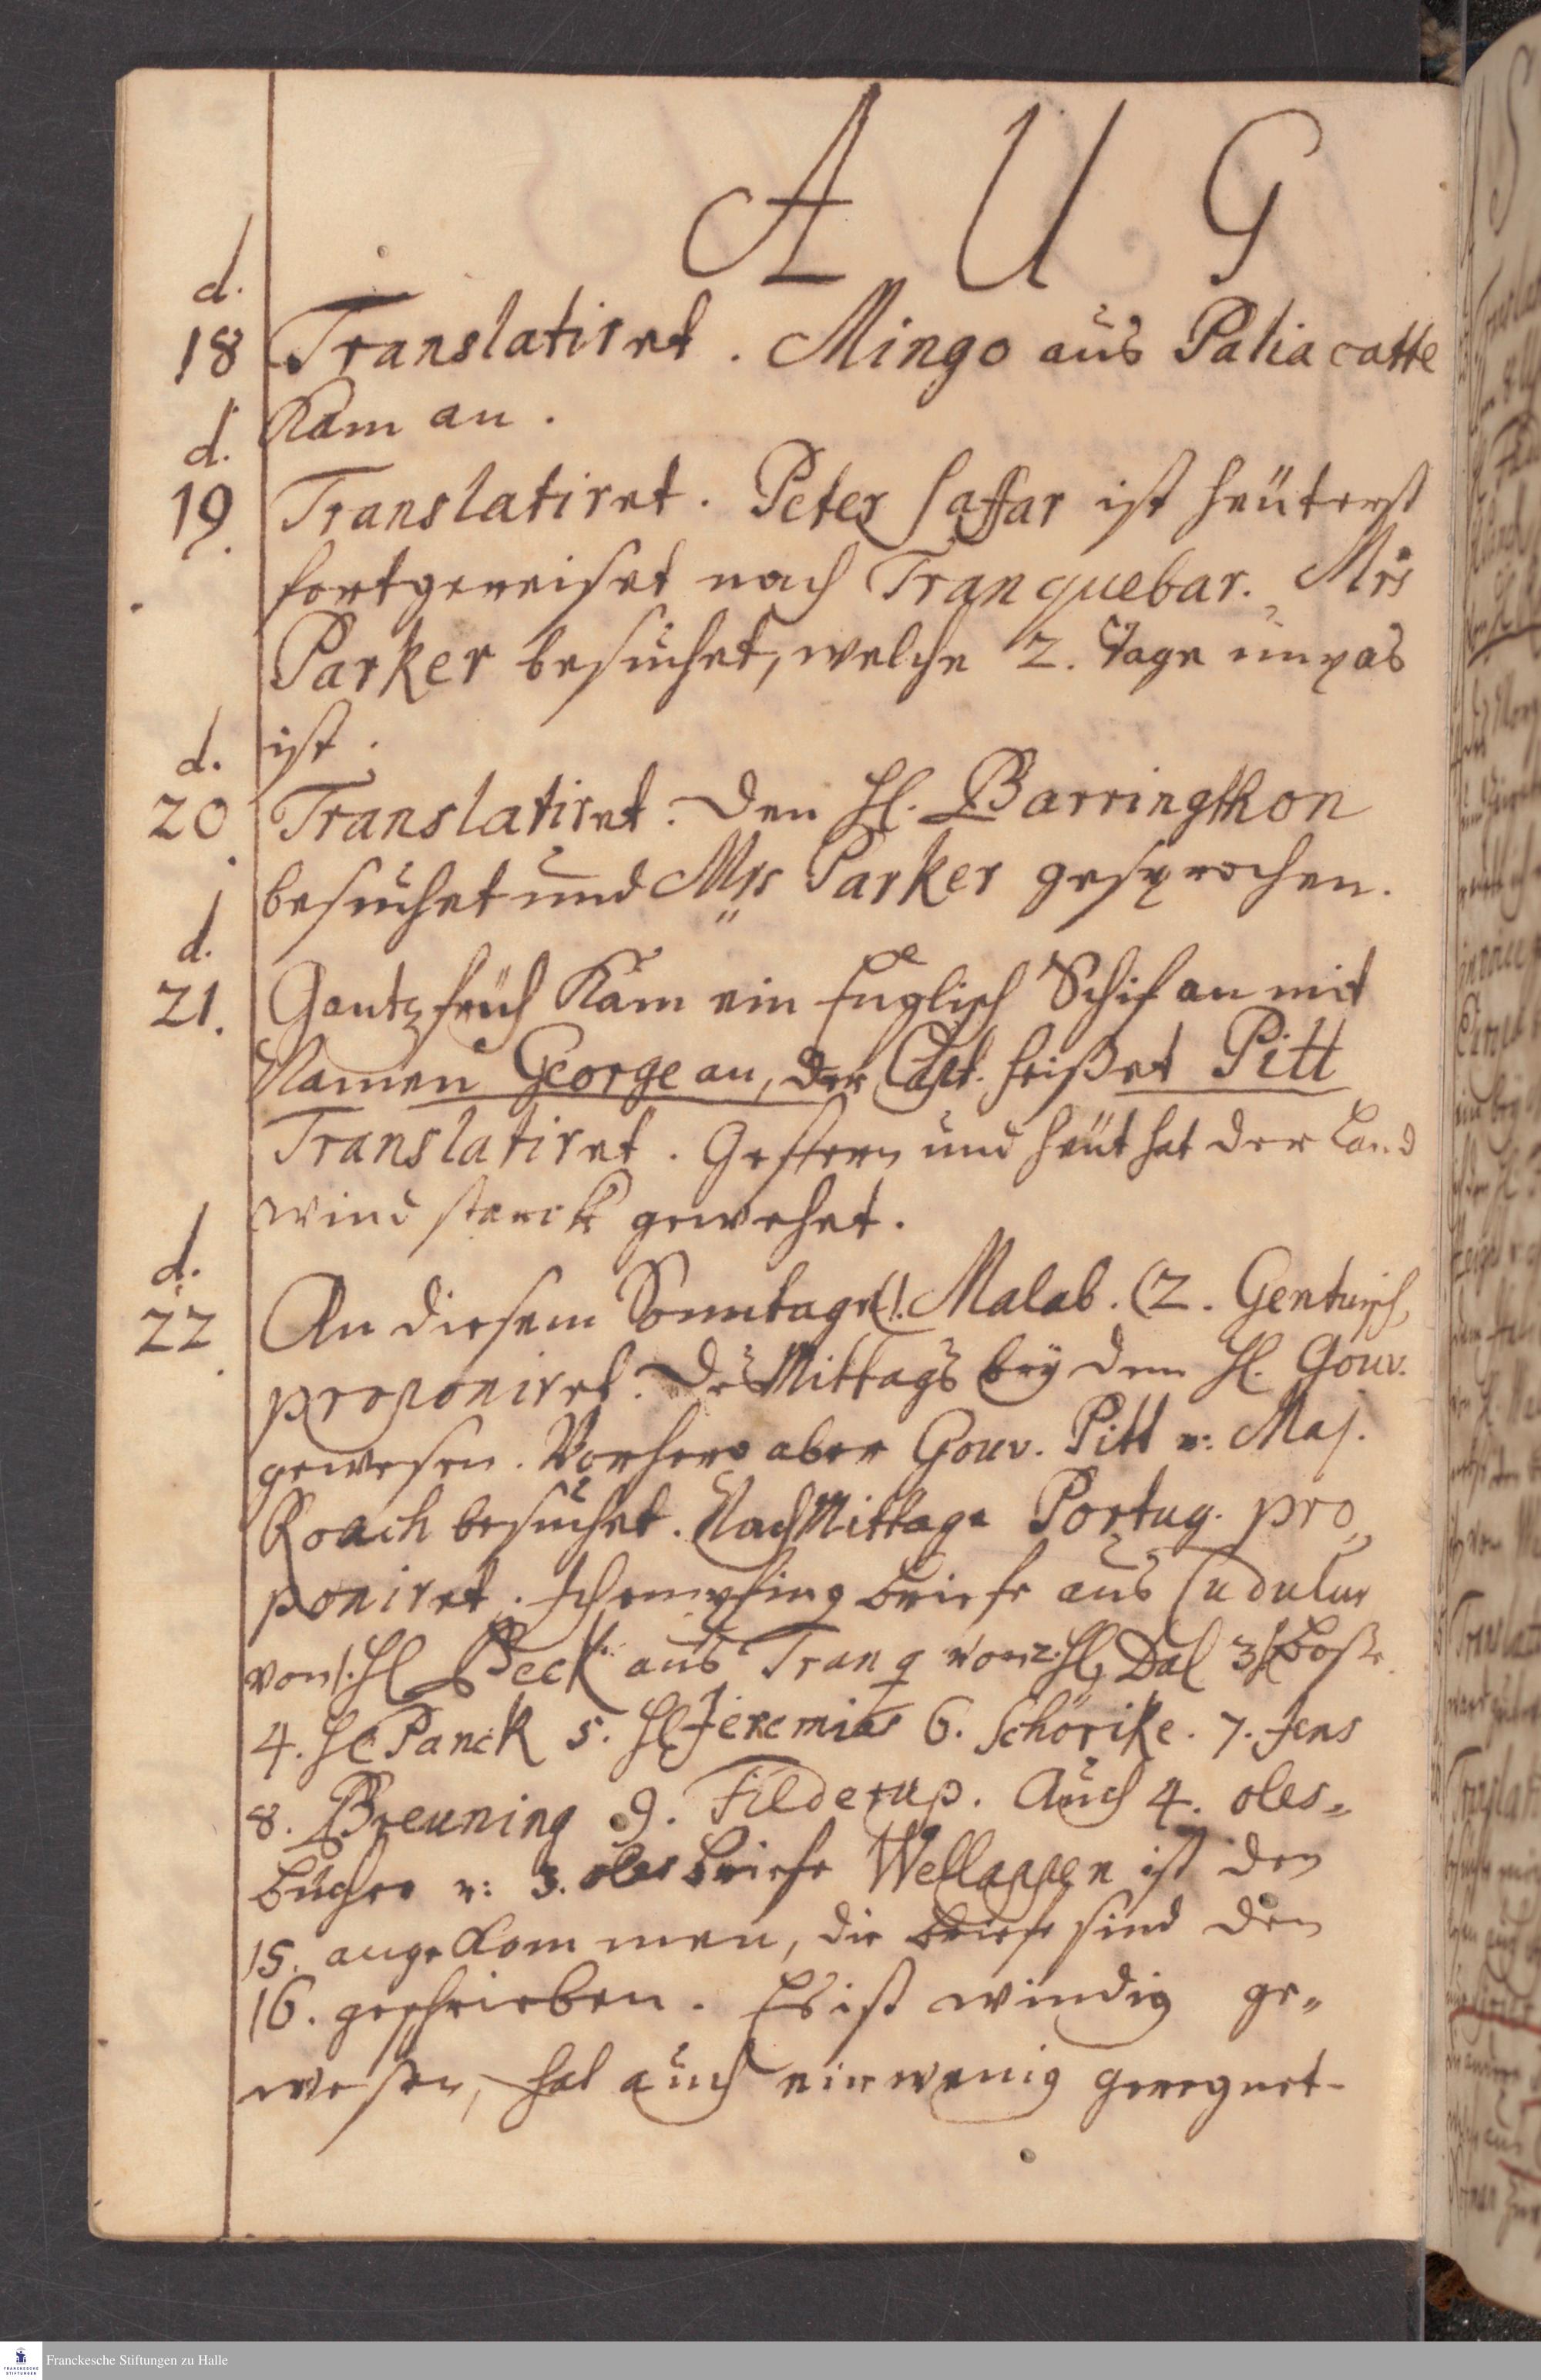 A U G
d.
18 Translatiret. Mingo aus Paliacatte
Kam an.
d.
19. Translatiret. Peter Saffar ist heüt erst
fortgereiset nach Tranquebar. Mrs
Parker besuchet, welche 2. Tage unpas
ist.
d.
20. Translatiret. Den H. Barringthon
besuchet und Mrs Parker gesprochen.
d.
21. Gantz früh Kam ein Englisch Schif an mit
Namen George an, der Capt. heißet Pitt
Translatiret. Gestern und heüt hat der Land
wind starck gewehet.
d.
22. An diesem Sonntage (1. Malab. (2. Gentuisch
proponiret. Des Mittags bey dem H. Gouv.
gewesen. Vorhero aber Gouv. Pitt u: Maj.
Roach besuchet. Nach Mittage Portug. pro„
poniret. Ich empfing Briefe aus Cudulur
von 1. H Beck aus Tranq von 2. H Dal 3 H Boße.
4. H Panck 5. H Jeremias 6. Schörike. 7. Jens
8. Breuning 9. Filderup. Auch 4. oles„
bücher u: 3. oles briefe Wellappen ist den
15. angekommen, die Briefe sind den
16. geschrieben. Es ist windig ge„
wesen, hat auch ein wenig geregnet-
Franckesche Stiftungen zu Halle
FRANCKESCHE
STIFTUNGEN